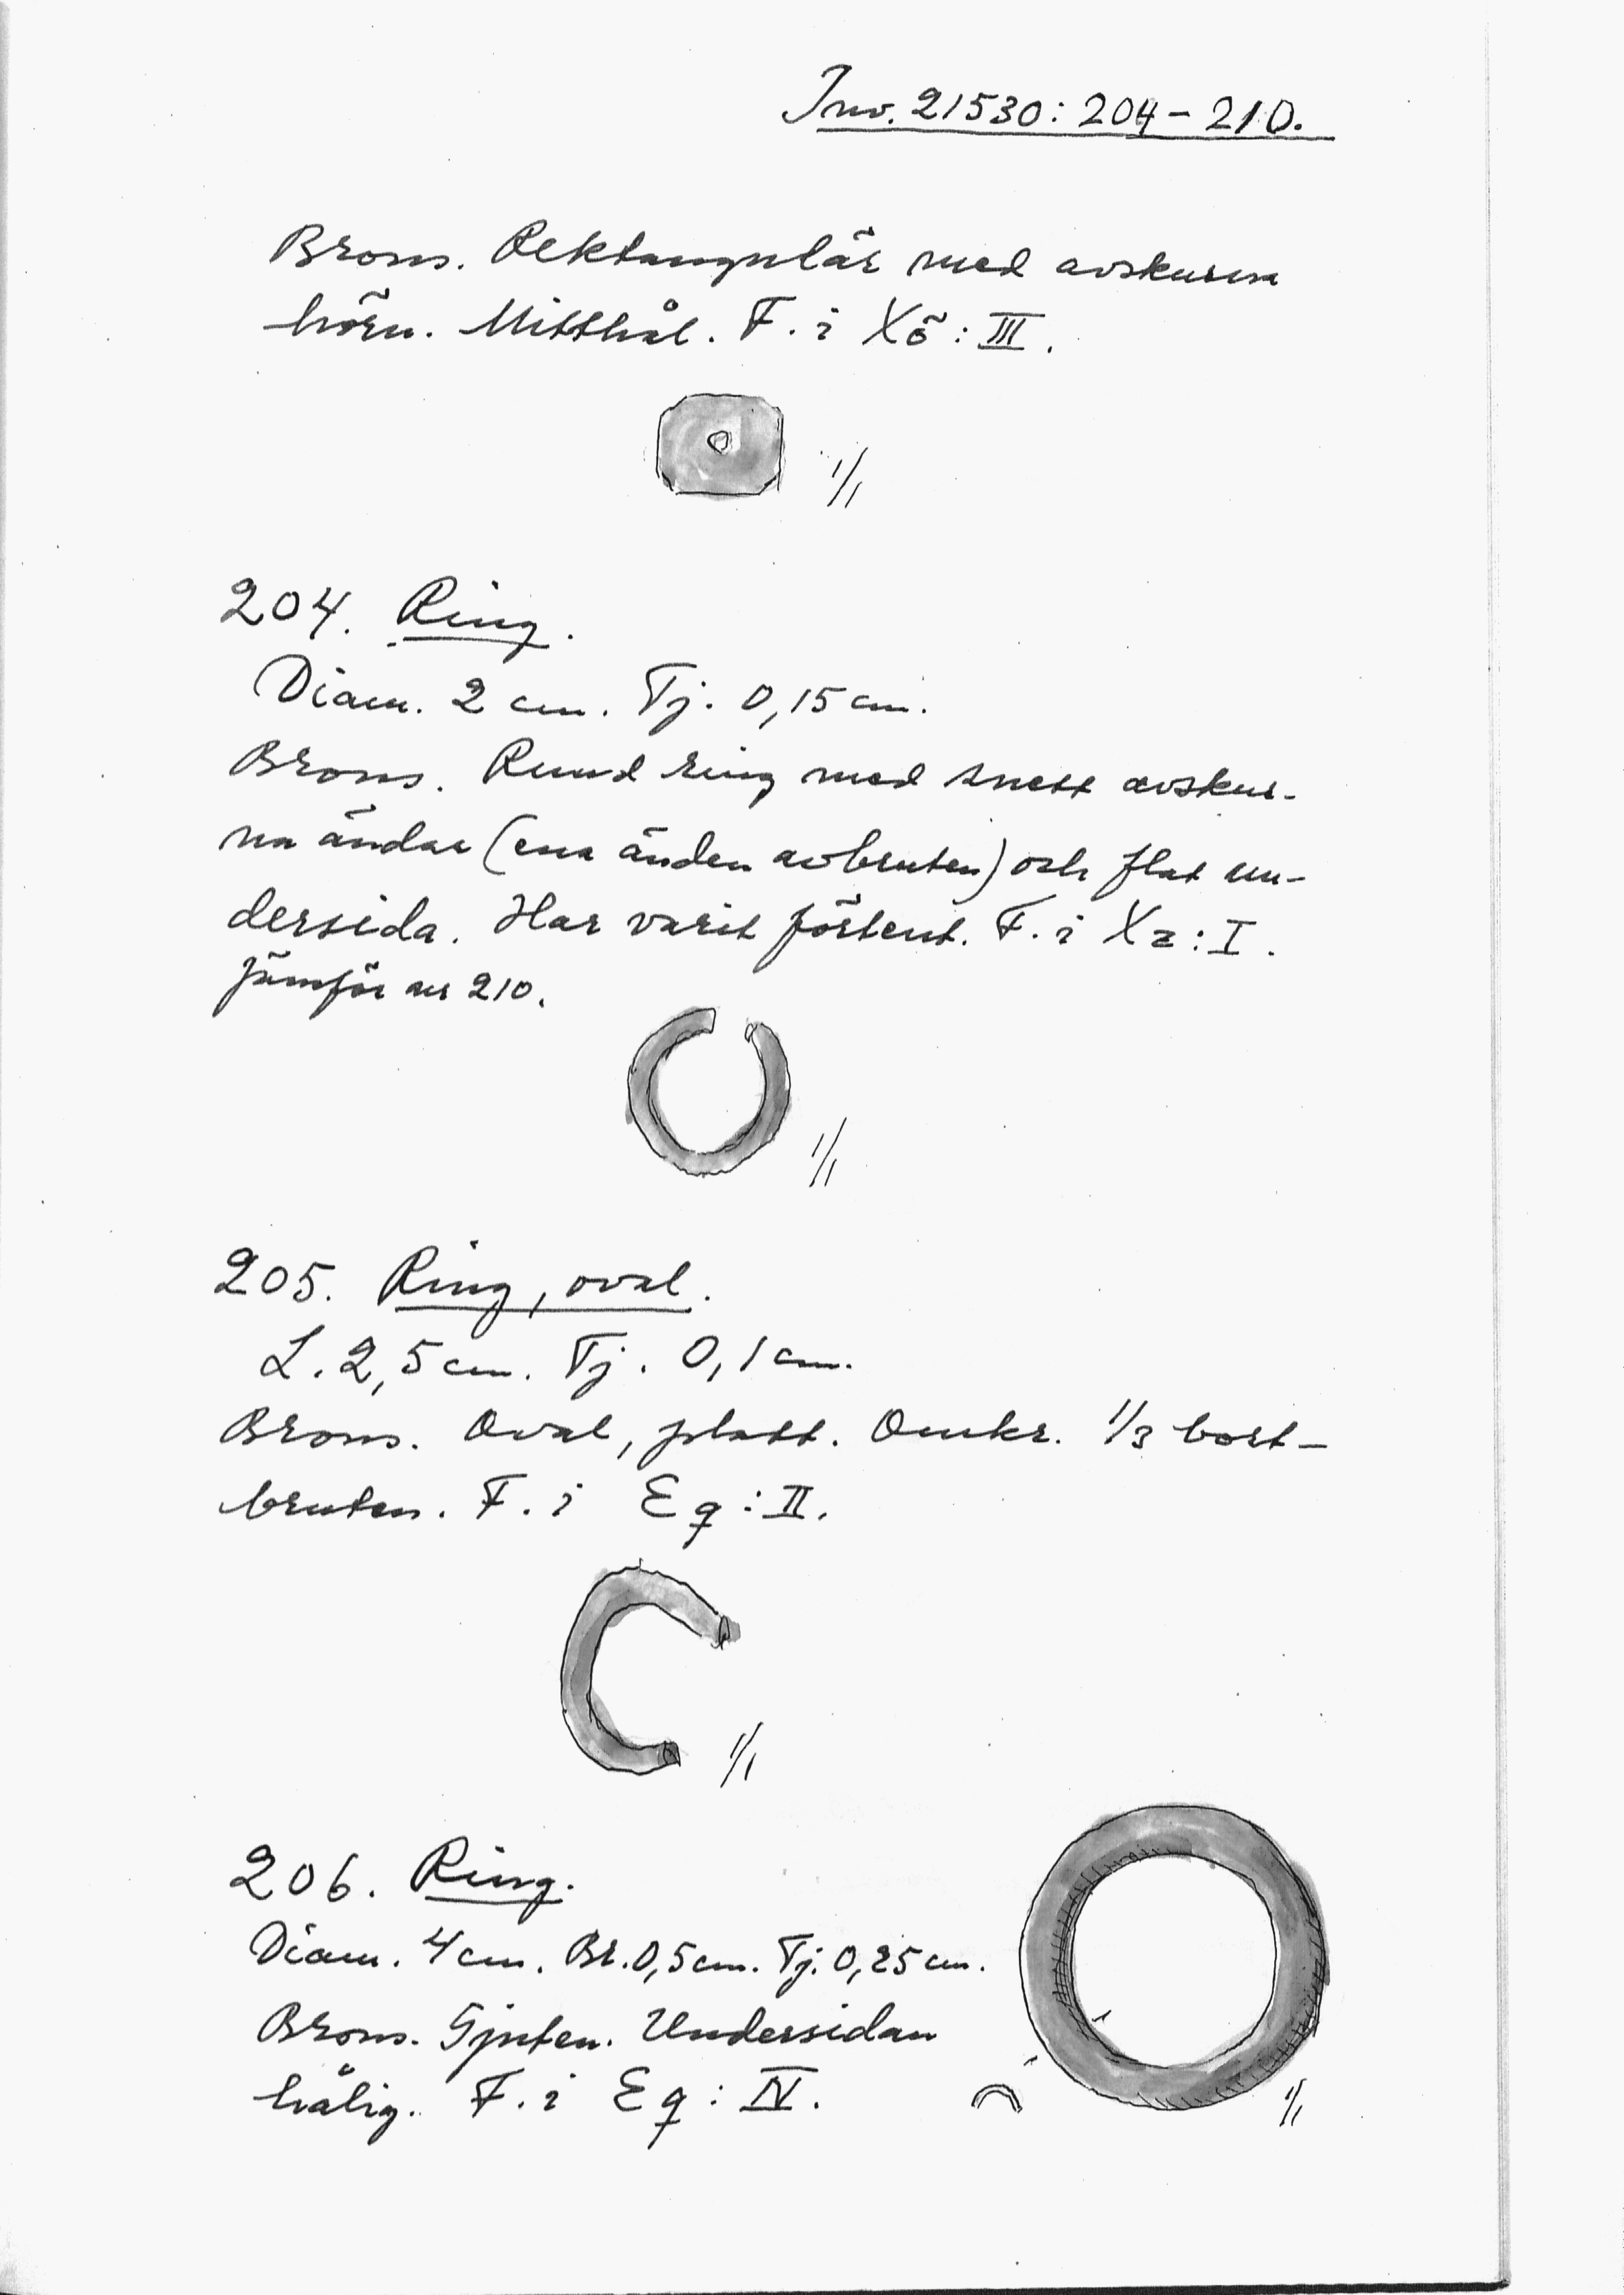 Inv. 21530: 204-210.
Brons. Rektangulär med avskurna
hörn. Mitthål. F. i Xö: III.
1/1
204. Ring.
Diam. 2 cm. Tj. 0,15 cm.
Brons. Rund ring med snett avskur-
na ändar (ena änden avbruten) och flat un-
dersida. Har varit förtent. F. i Xz: I.
Jämför nr 210.
1/1
205. Ring, oval.
L. 2,5 cm. Tj. 0,1 cm.
Brons. Oval, platt. Omkr. 1/3 bort-
bruten. F. i Eq: II.
1/1
206. Ring.
Diam. 4 cm. Br. 0,5 cm. Tj. 0,25 cm.
Brons. Gjuten. Undersidan
hålig. F. i Eq: IV.
1/1